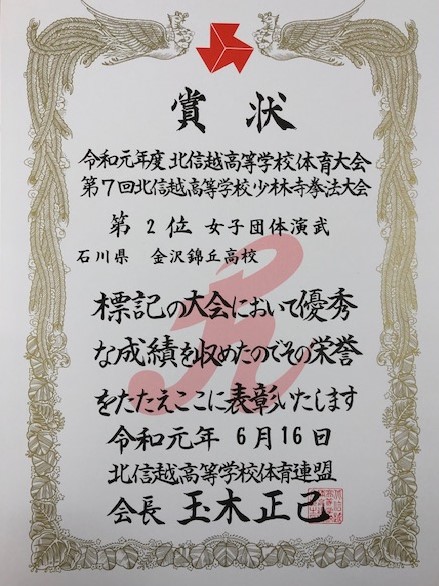 賞状
令和元年度北信越高等学校体育大会
第7回北信越高等学校少林寺拳法大会
第2位 女子団体演武
石川県 金沢錦丘高校
標記の大会において優秀
な成績を収めたのでその栄誉
をたたえここに表彰いたします
令和元年 6月16日
北信越高等学校体育連盟
会長 玉木正己